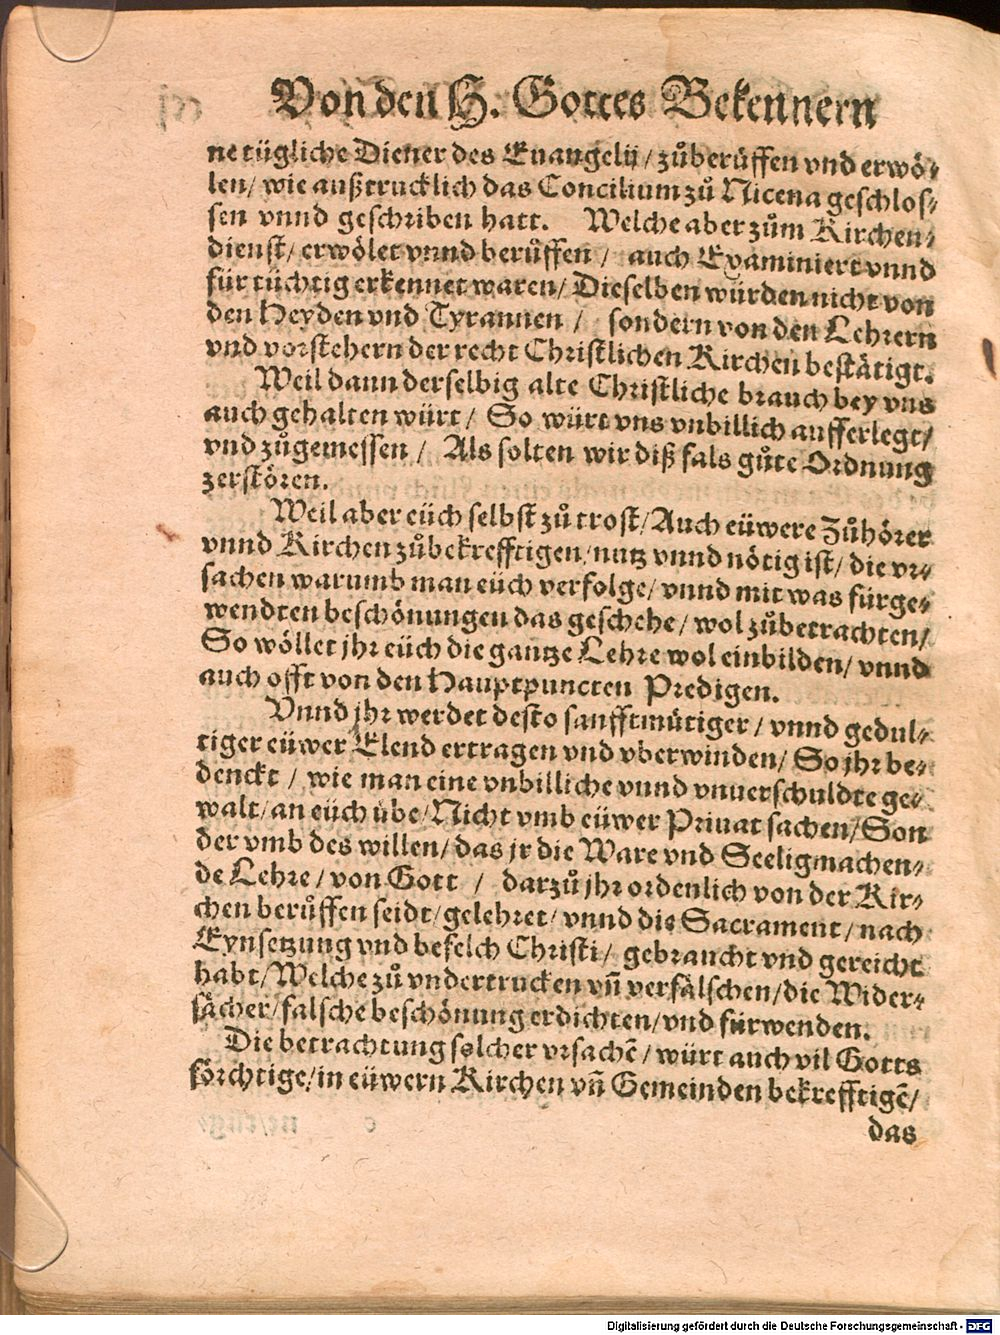 Von den H. Gottes Bekennern
ne tügliche Diener des Euangelij / zůberůffen vnd erwö-
len / wie außtrucklich das Concilium zů Nicena geschlos-
sen vnnd geschriben hatt. Welche aber zům Kirchen-
dienst / erwölet vnnd berůffen / auch Examiniert vnnd
für tüchtig erkennet waren / Dieselben würden nicht von
den Heyden vnd Tyrannen / sondern von den Lehrern
vnd vorstehern der recht Christlichen Kirchen bestätigt.
Weil dann derselbig alte Christliche brauch bey vns
auch gehalten würt / So würt vns vnbillich aufferlegt /
vnd zůgemessen / Als solten wir diß fals gůte Ordnung
zerstören.
Weil aber eüch selbst zů trost / Auch eüwere Zůhörer
vnnd Kirchen zůbekrefftigen / nutz vnnd nötig ist / die vr-
sachen warumb man eüch verfolge / vnnd mit was fürge-
wendten beschönungen das geschehe / wol zůbetrachten /
So wöllet jhr eüch die gantze Lehre wol einbilden / vnnd
auch offt von den Hauptpuncten Predigen.
Vnnd jhr werdet desto sanfftmütiger / vnnd gedul-
tiger eüwer Elend ertragen vnd vberwinden / So jhr be-
denckt / wie man eine vnbilliche vnnd vnuerschuldte ge-
walt / an eüch übe / Nicht vmb eüwer Priuat sachen / Son
der vmb des willen / das jr die Ware vnd Seeligmachen-
de Lehre / von Gott / darzů jhr ordenlich von der Kir-
chen berůffen seidt / gelehret / vnnd die Sacrament / nach
Eynsetzung vnd befelch Christi / gebraucht vnd gereicht
habt / Welche zů vndertrucken vñ verfälschen / die Wider-
sächer / falsche beschönung erdichten / vnd fürwenden.
Die betrachtung solcher vrsachẽ / würt auch vil Gotts
förchtige / in eüwern Kirchen vñ Gemeinden bekrefftigẽ /
das
Digitalisierung gefördert durch die Deutsche Forschungsgemeinschaft - DFG